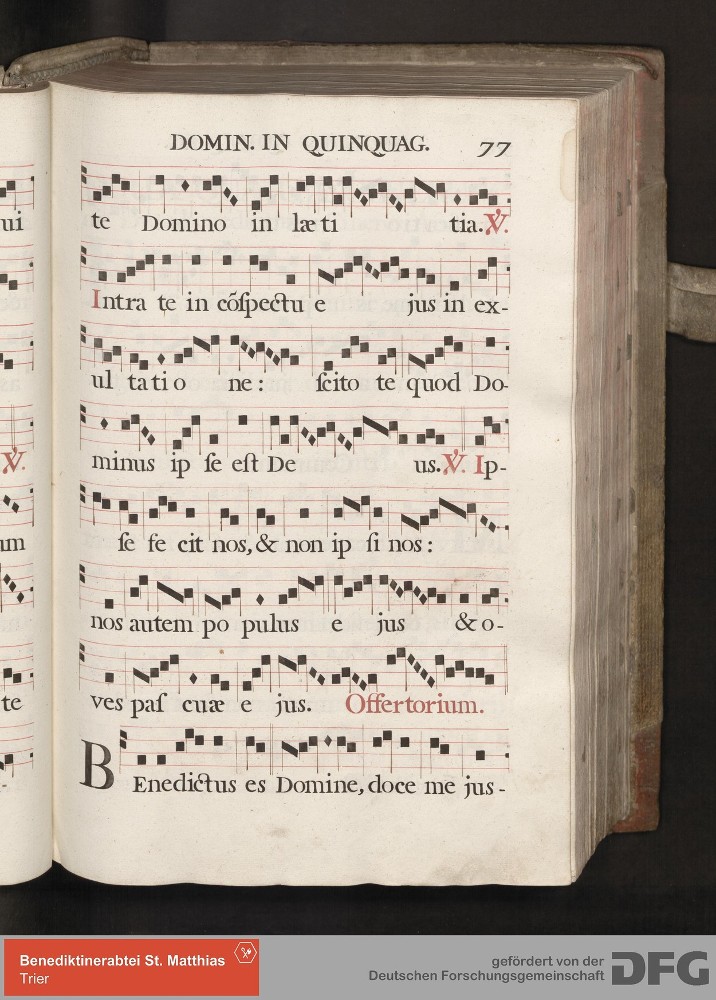 DOMIN. IN QUINQUAG. 77
te Domino in læ ti tia. ℣.
Intra te in cõſpectu e jus in ex-
ul ta ti o ne: ſcito te quod Do-
minus ip ſe eſt De us. ℣. Ip-
ſe fe cit nos, & non ip ſi nos:
nos autem po pulus e jus & o-
ves paſ cuæ e jus. Offertorium.
BEnedictus es Domine, doce me jus-
ui
℣.
um
te
Benediktinerabtei St. Matthias
Trier
gefördert von der
Deutschen Forschungsgemeinschaft
DFG